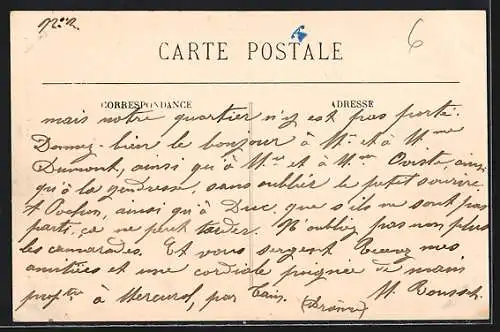 N° 2
6
CARTE POSTALE
CORRESPONDANCE
ADRESSE
mais notre quartier n'y est pas porté.
Donnez-bien le bonjour à Mr et à Mme
Dumont, ainsi qu'à Mr et à Mme ainsi
qu'à la gendresse, sans oublier le petit
ainsi qu'à Duc, que s'ils ne sont pas
parti, ça ne peut tarder. N'oubliez pas non plus
les camarades. Et vous sergent Recevez mes
amitiées et une cordiale poignée de main
proptre à Mercurol, par Tain. (Drôme) M. Rousset